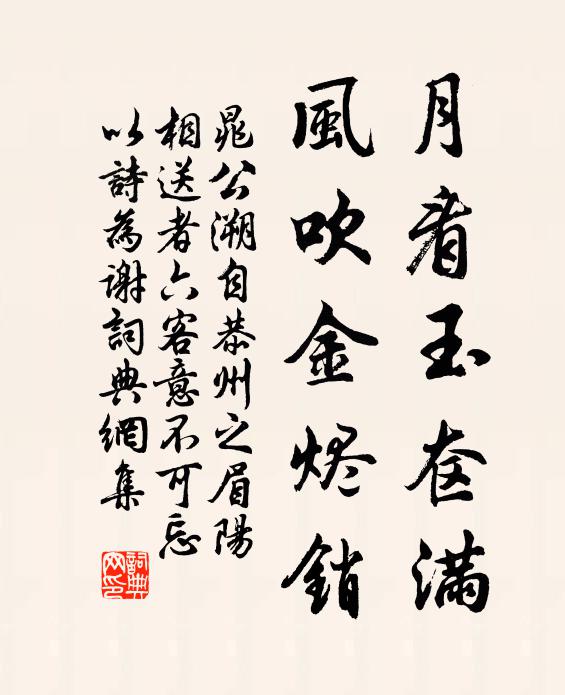 月看玉奁满
風吹金烬銷
晁公溯自恭州之眉陽
相送者六客意不可忘
以詩為谢詞典網集
詞典网印